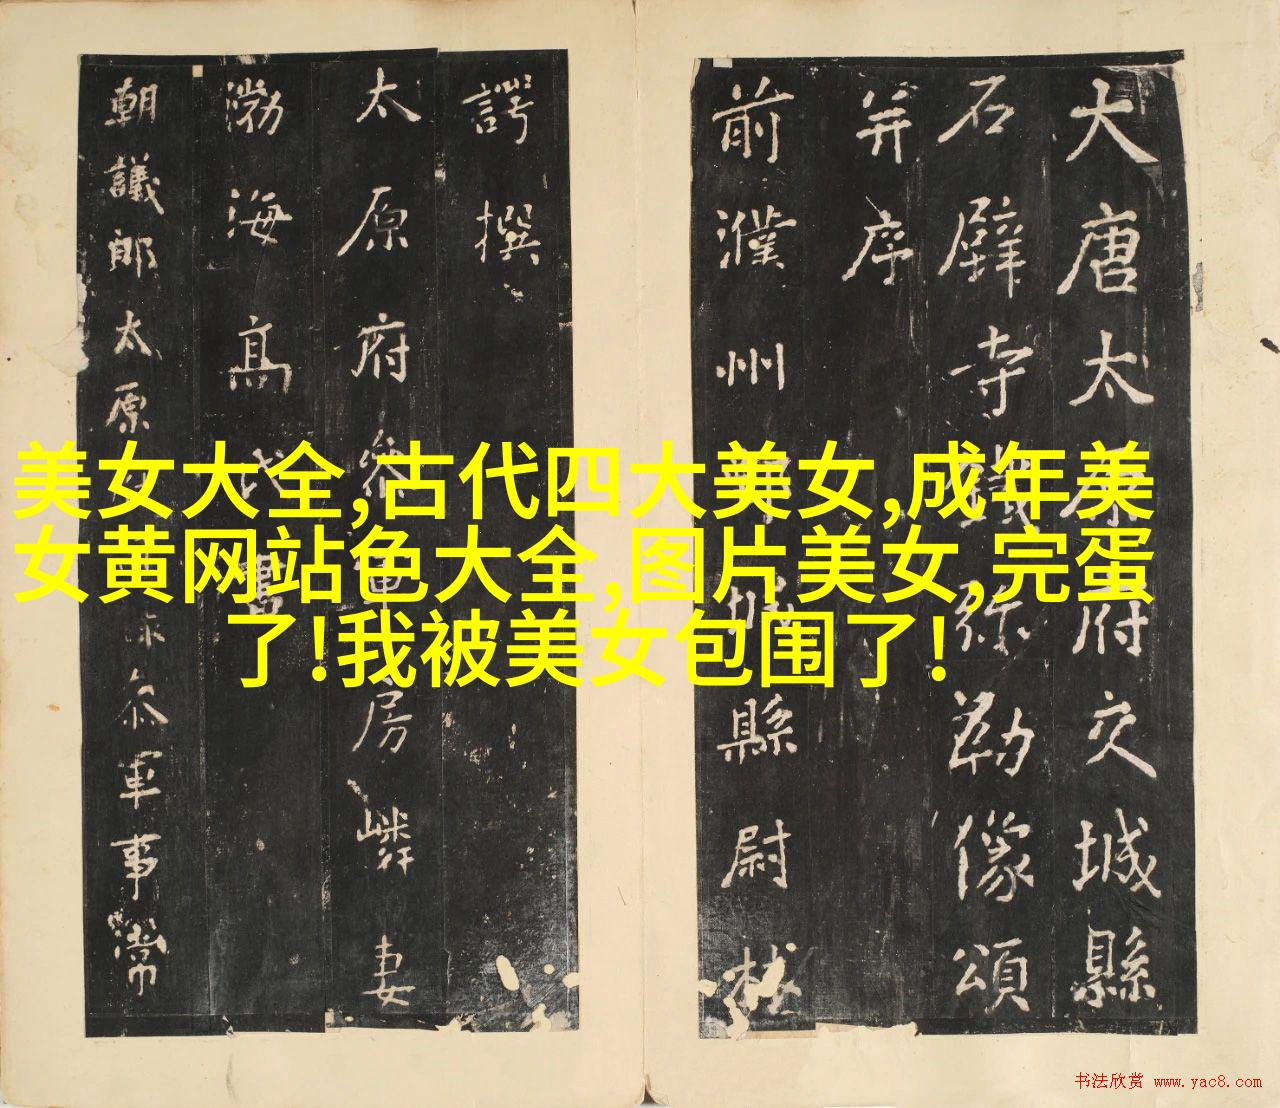 美女大全,古代四大美女,成年美
女黄网站色大全,图片美女,完蛋
了!我被美女包围了!
大唐太原府交城縣
石壁寺鐵弥勒像頌
并序
前濮州城縣尉林
諤撰
太原府参軍房嶙妻
渤海髙氏書
朝議郎太原叅軍事常
书法欣赏 www.yac8.com